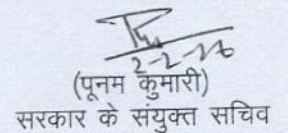 2-2-26
(पूनम कुमारी)
सरकार के संयुक्त सचिव